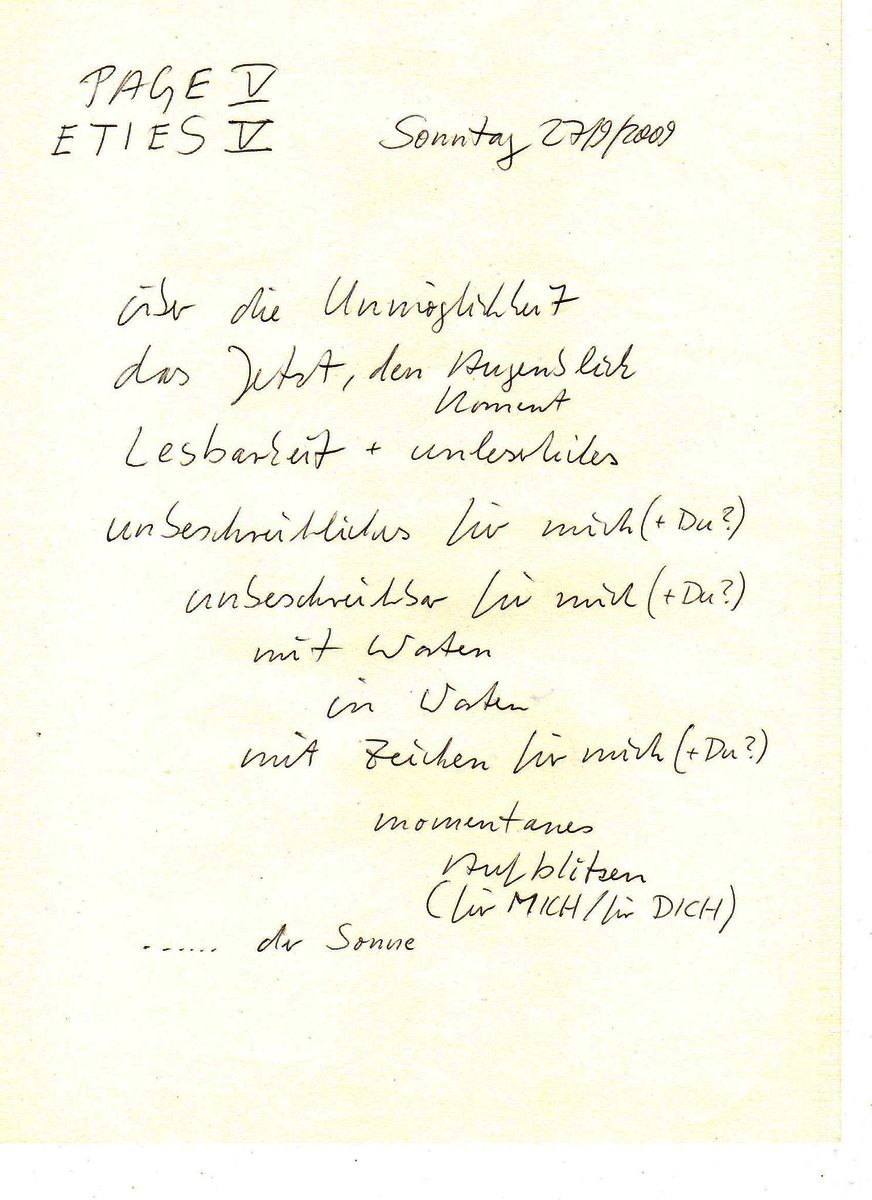 PAGE V
ETIES V Sonntag 27/9/2009
über die Unmöglichkeit
das Jetzt, den Augenblick
Moment
Lesbarkeit +
unbeschreibliches für mich (+ Du?)
unbeschreibbar für mich (+ Du?)
mit Worten
in Worten
mit Zeichen für mich (+ Du?)
momentanes
Aufblitzen
(für MICH / für DICH)
...... der Sonne